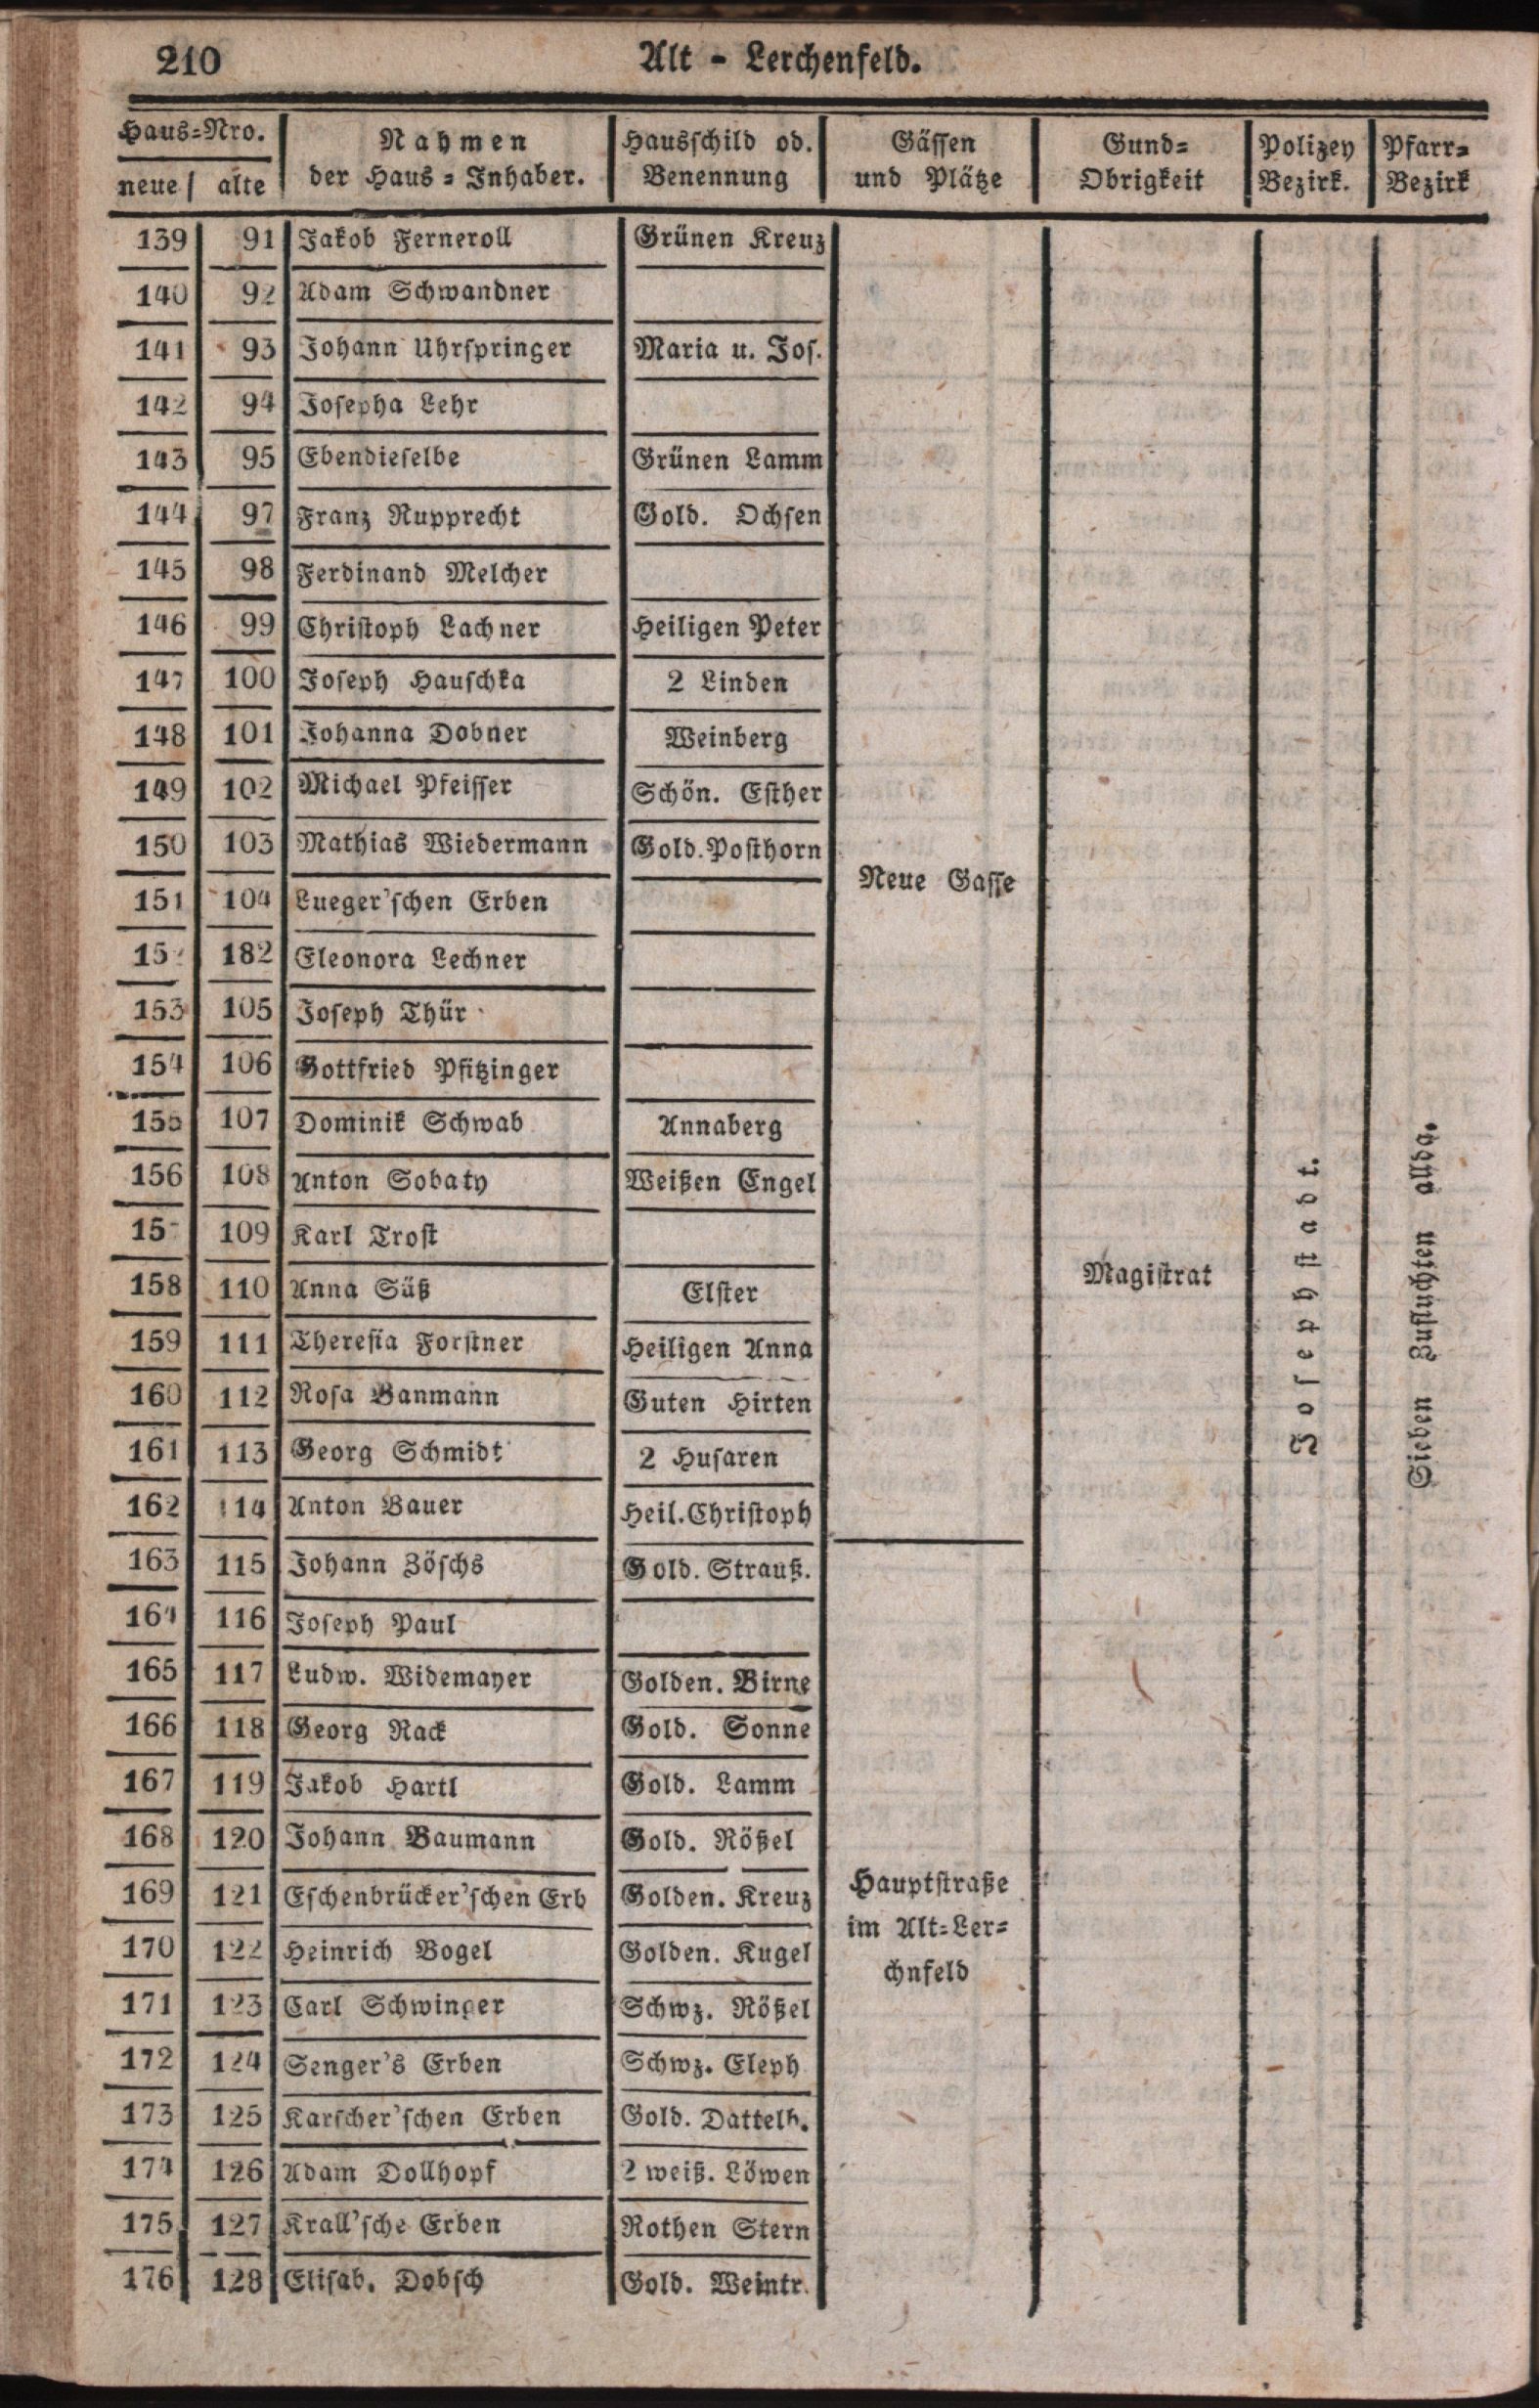 210 Alt - Lerchenfeld.
Haus-Nro. Nahmen Hausschild od. Gässen Gund- Polizey Pfarr-
neue alte der Haus-Inhaber. Benennung und Plätze Obrigkeit Bezirk. Bezirk
139 91 Jakob Ferneroll Grünen Kreuz
140 92 Adam Schwandner
141 93 Johann Uhrspringer Maria u. Jos.
142 94 Josepha Lehr
143 95 Ebendieselbe Grünen Lamm
144 97 Franz Rupprecht Gold. Ochsen
145 98 Ferdinand Melcher
146 99 Christoph Lachner Heiligen Peter
147 100 Joseph Hauschka 2 Linden
148 101 Johanna Dobner Weinberg
149 102 Michael Pfeisser Schön. Esther
150 103 Mathias Wiedermann Gold. Posthorn
Neue Gasse
151 104 Lueger'schen Erben
15 182 Eleonora Lechner
153 105 Joseph Thür
154 106 Gottfried Pfitzinger
155 107 Dominik Schwab Annaberg
156 108 Anton Sobaty Weißen Engel
15 109 Karl Trost
158 110 Anna Süß Elster
Magistrat
Josephstadt.
Sieben Zufluchten allda.
159 111 Theresia Forstner Heiligen Anna
160 112 Rosa Banmann Guten Hirten
161 113 Georg Schmidt 2 Husaren
162 114 Anton Bauer Heil. Christoph
163 115 Johann Zöschs Gold. Strauß.
164 116 Joseph Paul
165 117 Ludw. Widemayer Golden. Birne
166 118 Georg Rack Gold. Sonne
167 119 Jakob Hartl Gold. Lamm
168 120 Johann Baumann Gold. Rößel
169 121 Eschenbrücker'schen Erb Golden. Kreuz
Hauptstraße
im Alt-Ler-
chnfeld
170 122 Heinrich Vogel Golden. Kugel
171 123 Carl Schwinger Schwz. Rößel
172 124 Senger's Erben Schwz. Eleph
173 125 Karscher'schen Erben Gold. Dattelb.
174 126 Adam Dollhopf 2 weiß. Löwen
175 127 Krall'sche Erben Rothen Stern
176 128 Elisab. Dobsch Gold. Weintr.